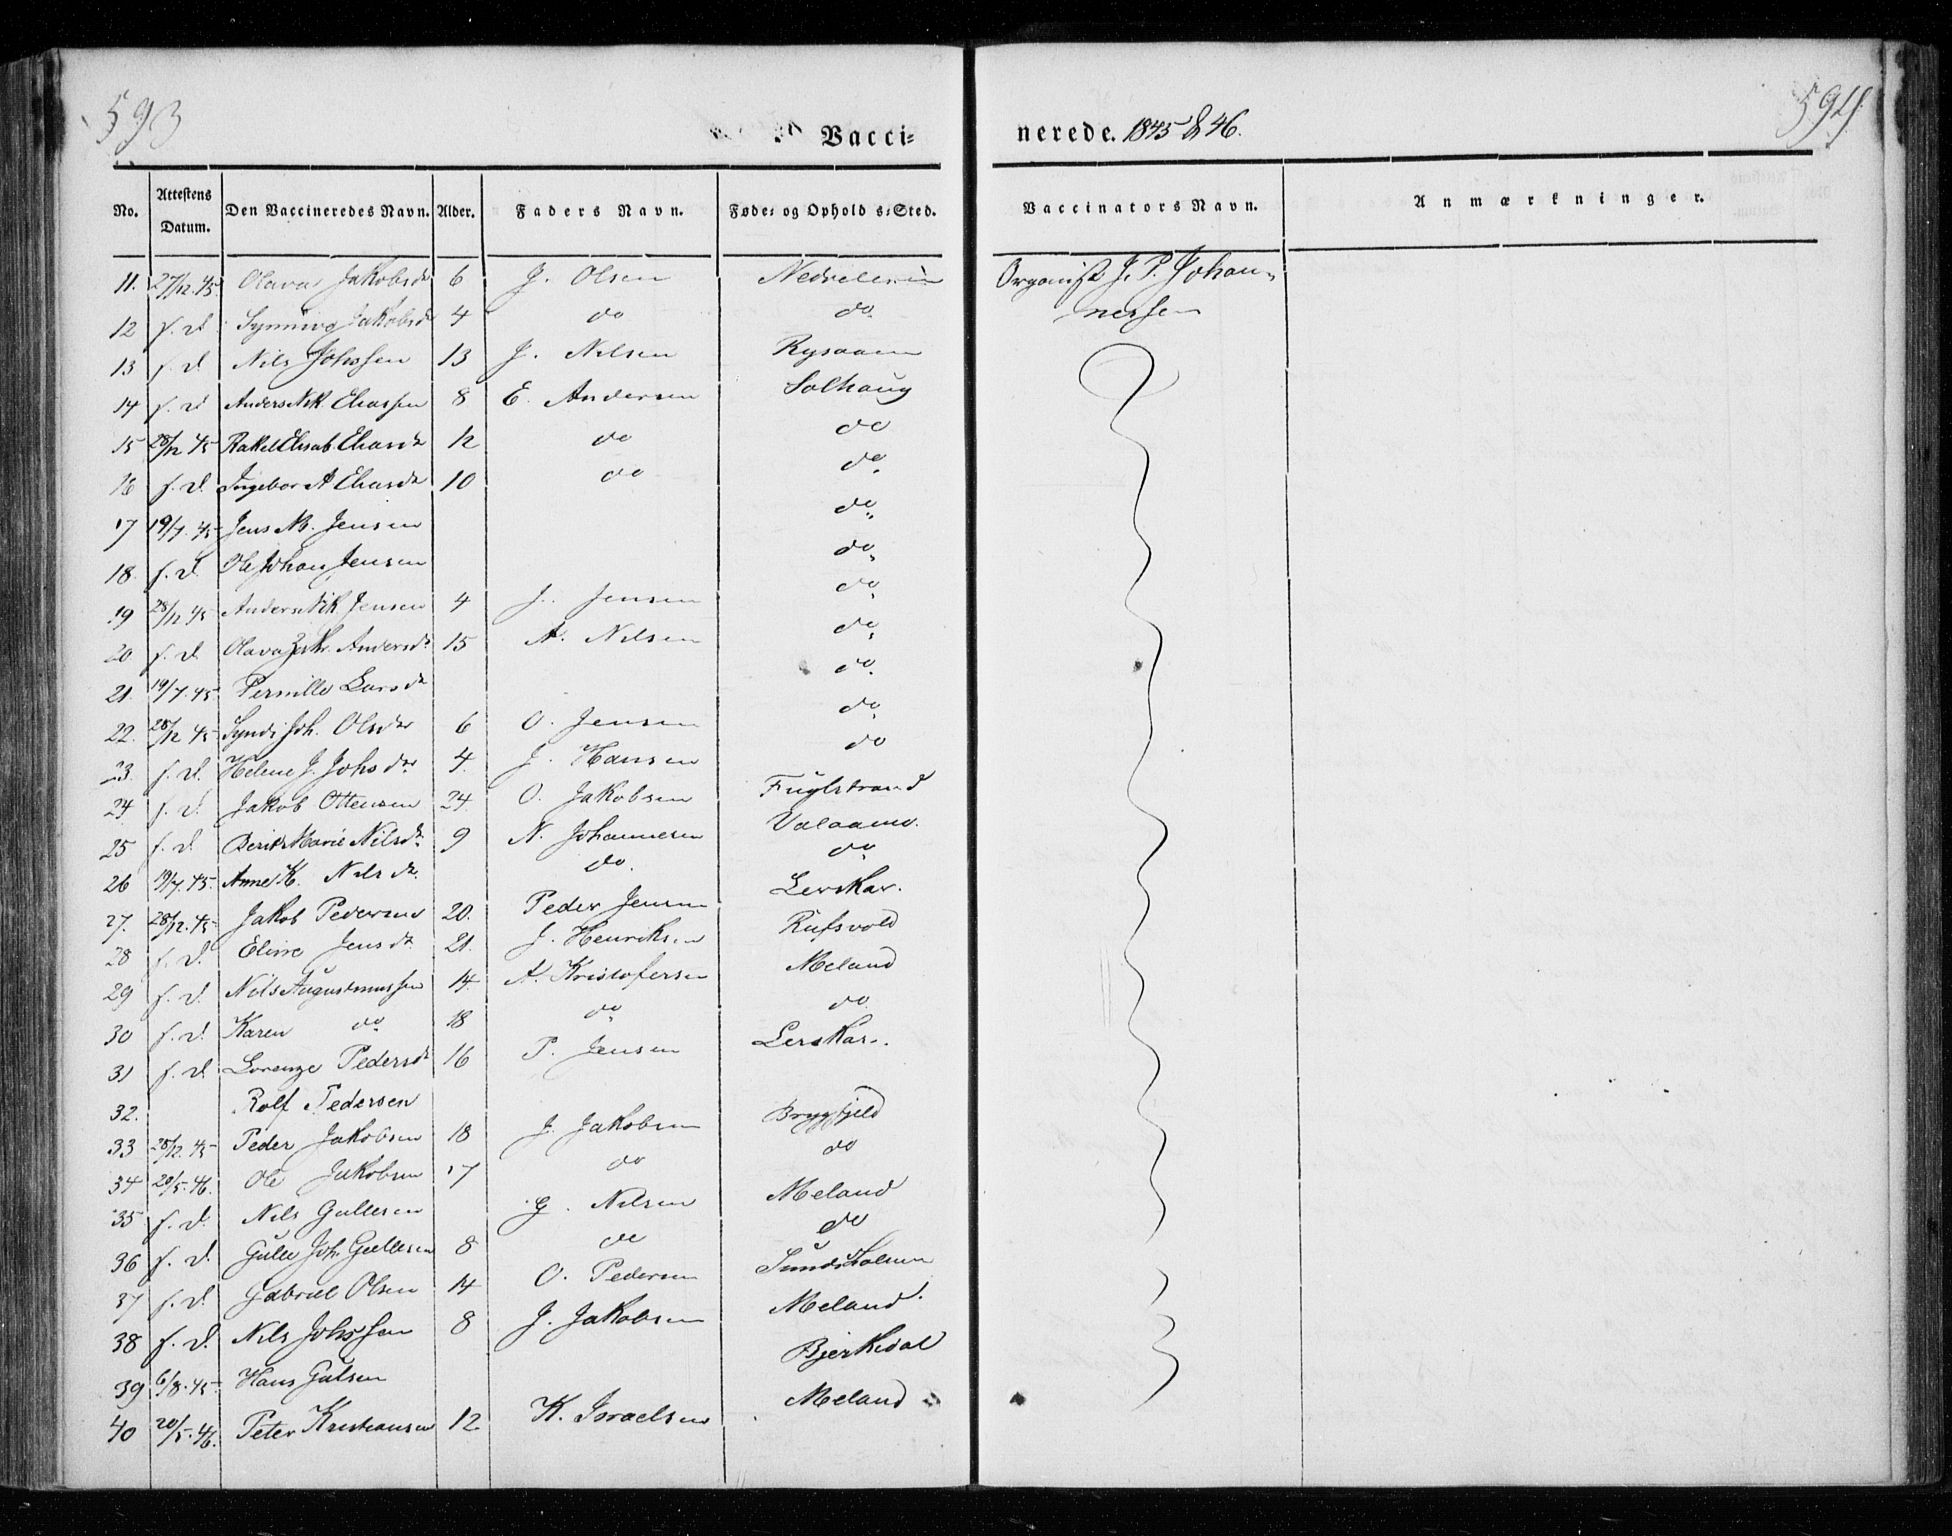 593
594
Vacci-
nerede. 1845 & 46.
No. Attestens Datum. Den Vaccineredes Navn. Alder. Faders Navn. Føde- og Opholds-Sted. Vaccinators Navn. Anmærkninger.
11. 27/12.45. Olava Jakobsdr 6 J. Olsen Organist J. P. Johan-
12 s. d. Jakobsdr 4 do do nessen
13 s. d. Nils Johssen 13 J. Nilsen Rysaaen
14 s. d. Anders Nik. Eliassen 8 E. Andersen Solhaug
15 28/12 45 Rakel Elisab. Eliasdr 12 do do
16 s. d. Ingebor A Eliasdr 10 do do
17 19/7. 45 Jens M. Jensen do
18 s. d. Ole Johan Jensen do
19 28/12 45 Anders Nik. Jensen 4 J. Jensen do
20 s. d. Olava Andersdr 15 A. Nilsen do
21. 19/7. 45. Pernille Larsdr do
22. 28/12 45 Joh. Olsdr 6 O. Jensen do
23. s. d. Helene J. Johsdr 4. J. Hansen do
24 s. d. Jakob Ottensen 24 O. Jakobsen Fuglstrand
25 s. d. Berit Marie Nilsdr 9 N. Johannesen
26 19/7. 45. Anne K. Nilsdr do. do
27. 28/12. 45 Jakob Pedersen 20. Peder Jensen Lerskar.
28 s. d. Eline Jensdr 21. J. Henriksen Rufsvold
29 s. d. Nils Augustinussen 14 A. Kristofersen Meland
30 s. d. Karen do 18 do do
31 s. d. Lorenze Pedersdr 16 P. Jensen Lerskar.
32. Rolf Pedersen
33 28/12. 45 Peder Jakobsen 18 J. Jakobsen Bryggfjeld
34 20/5. 46. Ole Jakobsen 17 do do
35 s. d. Nils Gullesen G. Nilsen Meland
36 s. d. Gulle Joh. Gullesen 8 do do
37 s. d. Gabriel Olsen 14 O. Pedersen Sundsholmen
38 s. d. Nils Johssen 8 J. Jakobsen Meland.
39 6/8. 45. Hans Gulsen Bjerkedal
40 20/5. 46. Peter Kristiansen 12 K. Israelsen Meland